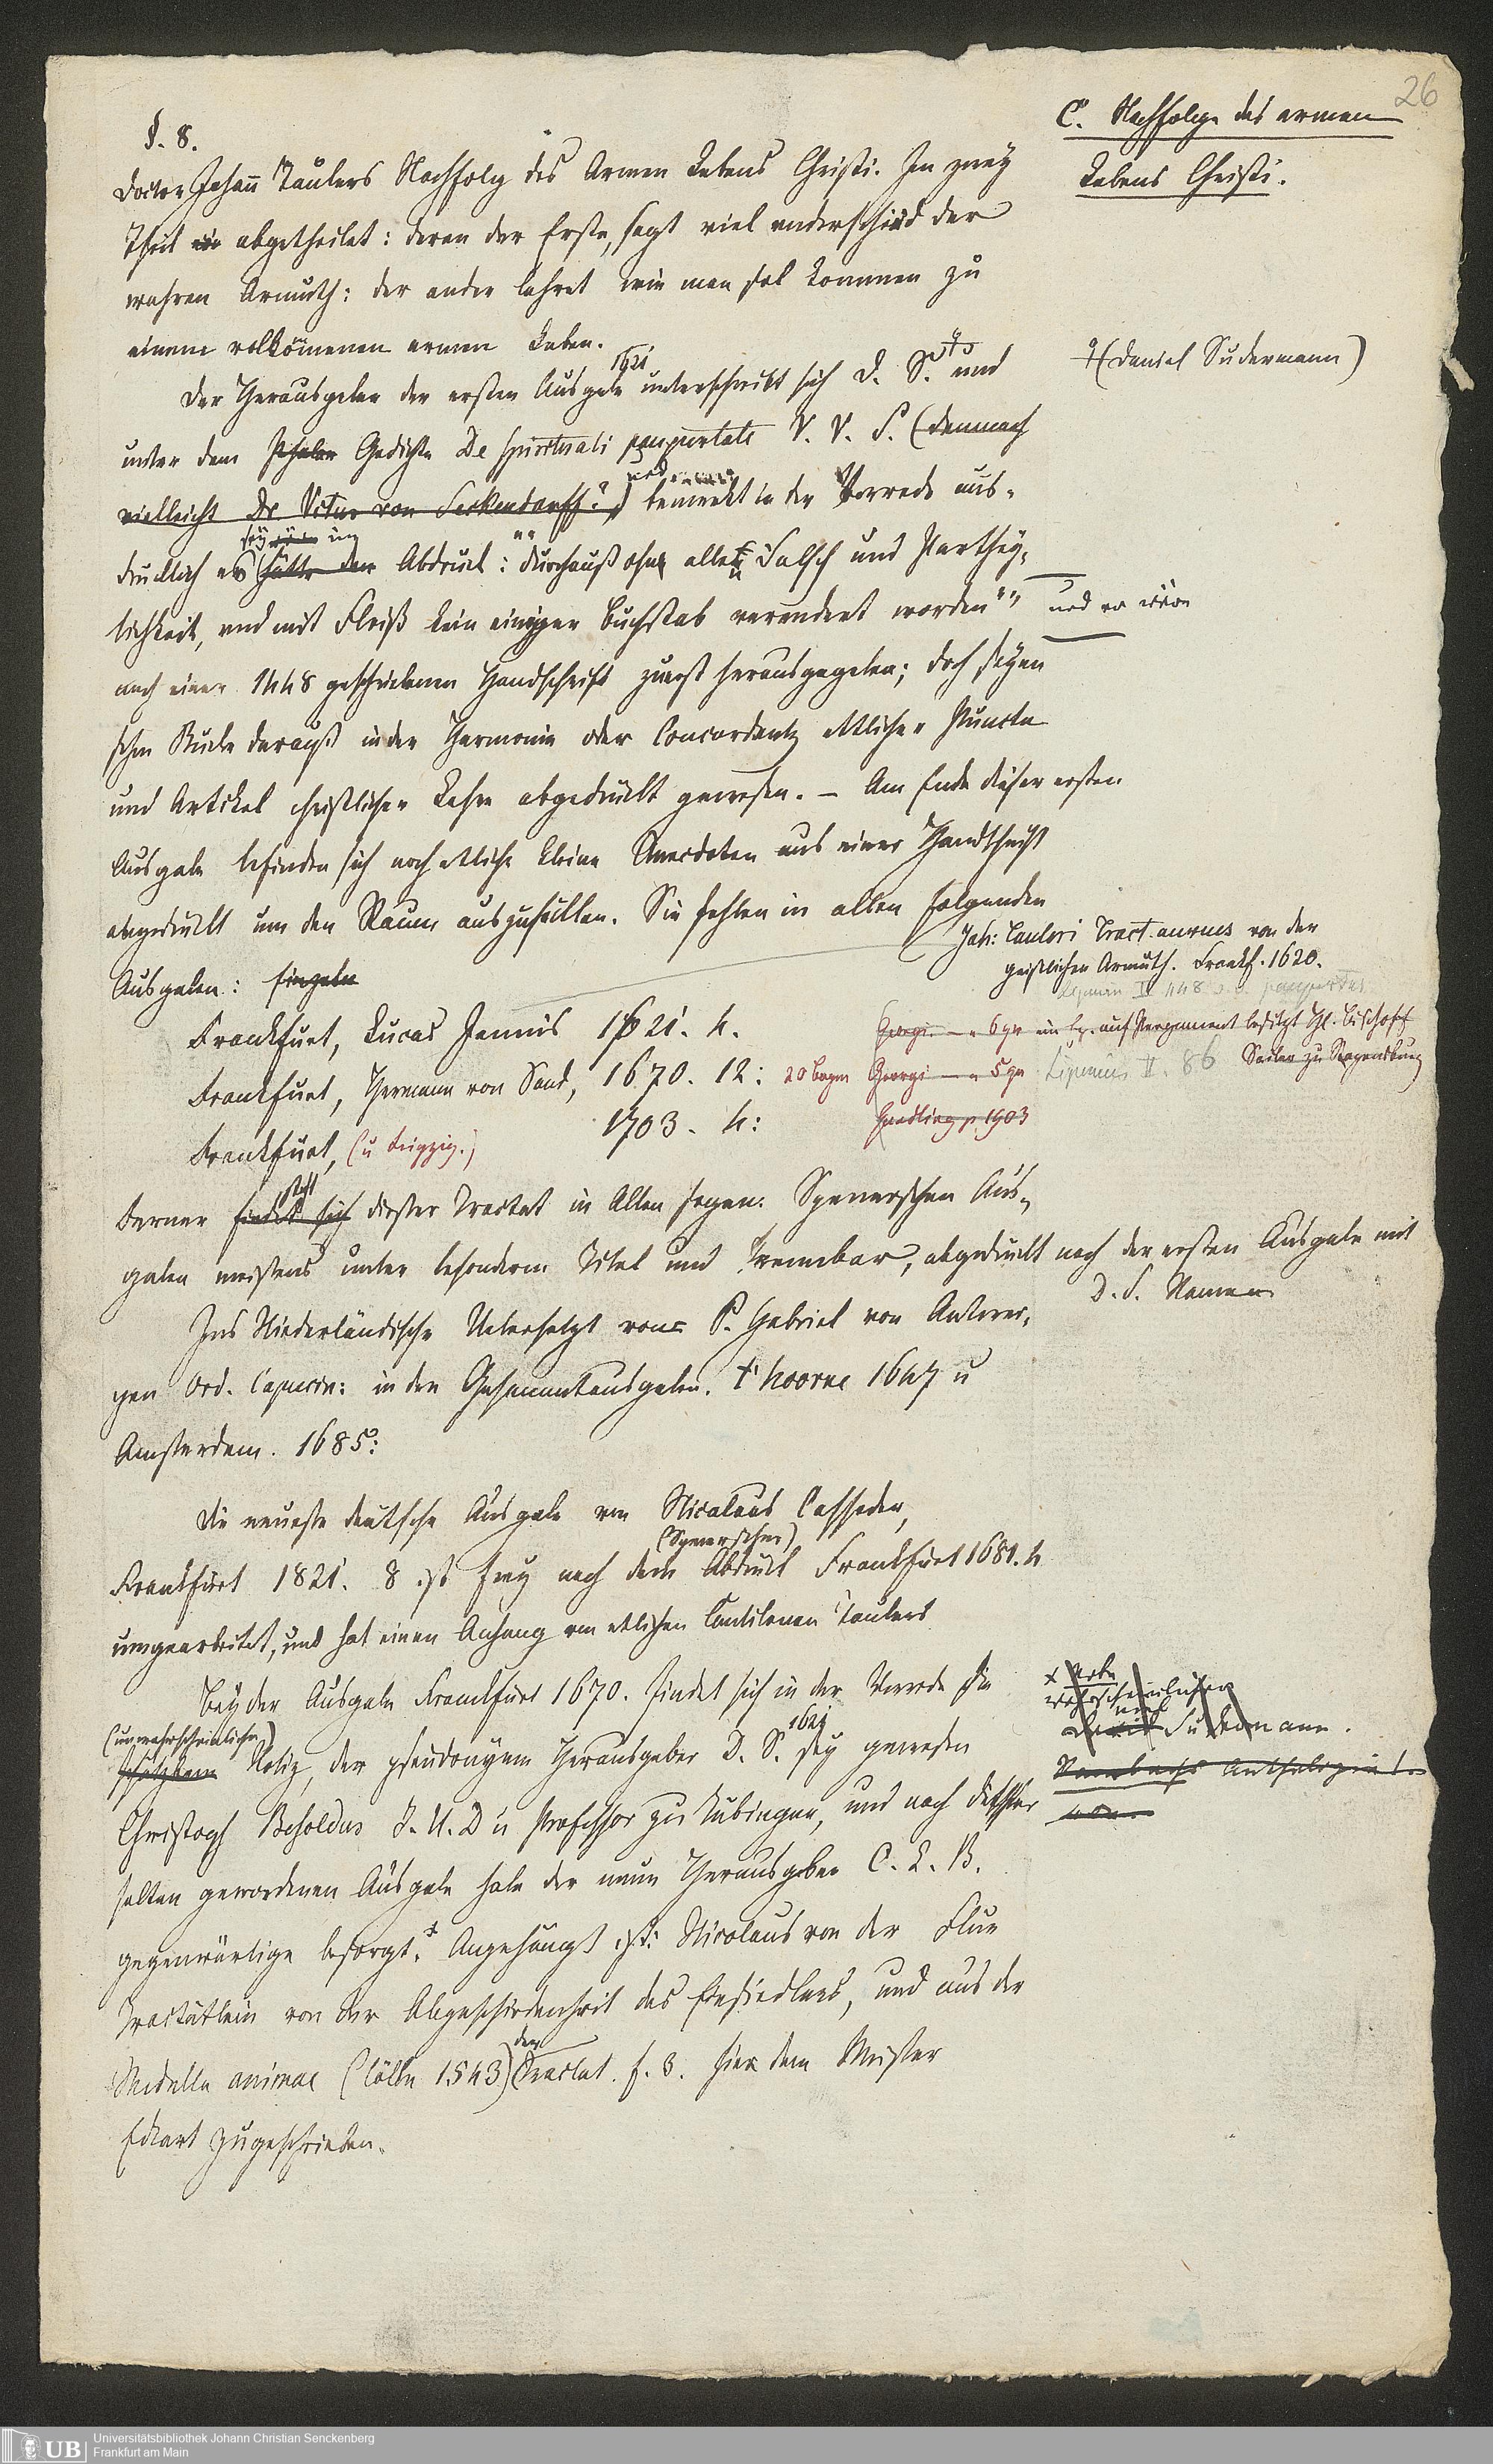 26
C. Nachfolge des armen
Lebens Christi.
§. 8.
Doctor Johann Taulers Nachfolg des Armen Lebens Christi. In zwey
Theil abgetheilet: deren der Erste, sagt viel underschied der
wahren Armuth: der ander lehret wie man sol kommen zu
einem volkömenen armen Leben.
Der Herausgeber der ersten Ausgabe 1621 unterschreibt sich D. S. und
(Daniel Sudermann)
unter dem Gedichte De spirituali paupertate V. V. S. (demnach
vielleicht Dr. Vitus von Seckendorff?) bemerkt in der Vorrede aus-
drücklich es sey im Abdruck: "durchauß ohne allen Falsch und Parthey-
lichkeit, und mit Fleiß kein einiger Buchstab verendert worden" und er wäre
nach einer 1448 geschriebenen Handschrift zuerst herausgegeben; doch seyen
schon Stücke darauß in der Harmonie oder Concordantz ettlicher Puncte
und Artikel christlicher Lehre abgedruckt gewesen. – Am Ende dieser ersten
Ausgabe befinden sich noch etliche kleine Anecdoten aus einer Handschrift
abgedruckt um den Raum auszufüllen. Sie fehlen in allen folgenden
Ausgaben: einzeln
Joh: Tauleri Tract. aureus von der
geistlichen Armuth. Frankf. 1620.
Frankfurt, Lucas Jennis 1621. 4.
Georgi – 6 gr ein Ex. auf Pergament besitzt Hl. Bischoff
Sailer zu Regensburg
Frankfurt, Hermann von Sand, 1670. 12: 20 bogen Georgi – 5 gr Lipenius II. 86
Frankfurt, (u Leipzig.) 1703. 4:
Ferner steht dieser Tractat in Allen sogen. Spenerschen Aus-
gaben meistens unter besonderm Titel und trennbar, abgedruckt nach der ersten Ausgabe mit
D. S. Namen
Ins Niederländische Uebersetzt von P. Gabriel von Antwer-
pen Ord. Capucin: in den Gesammtausgaben. t'hoorne 1647 u
Amsterdam. 1685:
Die neueste deutsche Ausgabe von Nicolaus Casseder,
Frankfurt 1821. 8 ist frey nach dem (Spenerschen) Abdruck Frankfurt 1681. 4
umgearbeitet, und hat einen Anhang von etlichen Cantilenen Taulers
Bey der Ausgabe Franckfurt 1670. findet sich in der Vorrede die
(unwahrscheinliche) Notiz, der pseudonyme Herausgeber D. S. 1621 sey gewesen
wahrscheinlicher
Sudermann.
Christoph Besoldus J. U. D u Professor zu Tübingen, und nach dieser
selten gewordenen Ausgabe habe der neue Herausgeber C. L. B.
gegenwärtige besorgt. Angehängt ist: Nicolaus von der Flue
Tractätlein von der Abgeschiedenheit des Einsiedlers, und aus der
Medulla animae (Cölln 1543) der Tractat. f. 3. hier dem Meister
Eckart zugeschrieben.
UB Universitätsbibliothek Johann Christian Senckenberg
Frankfurt am Main